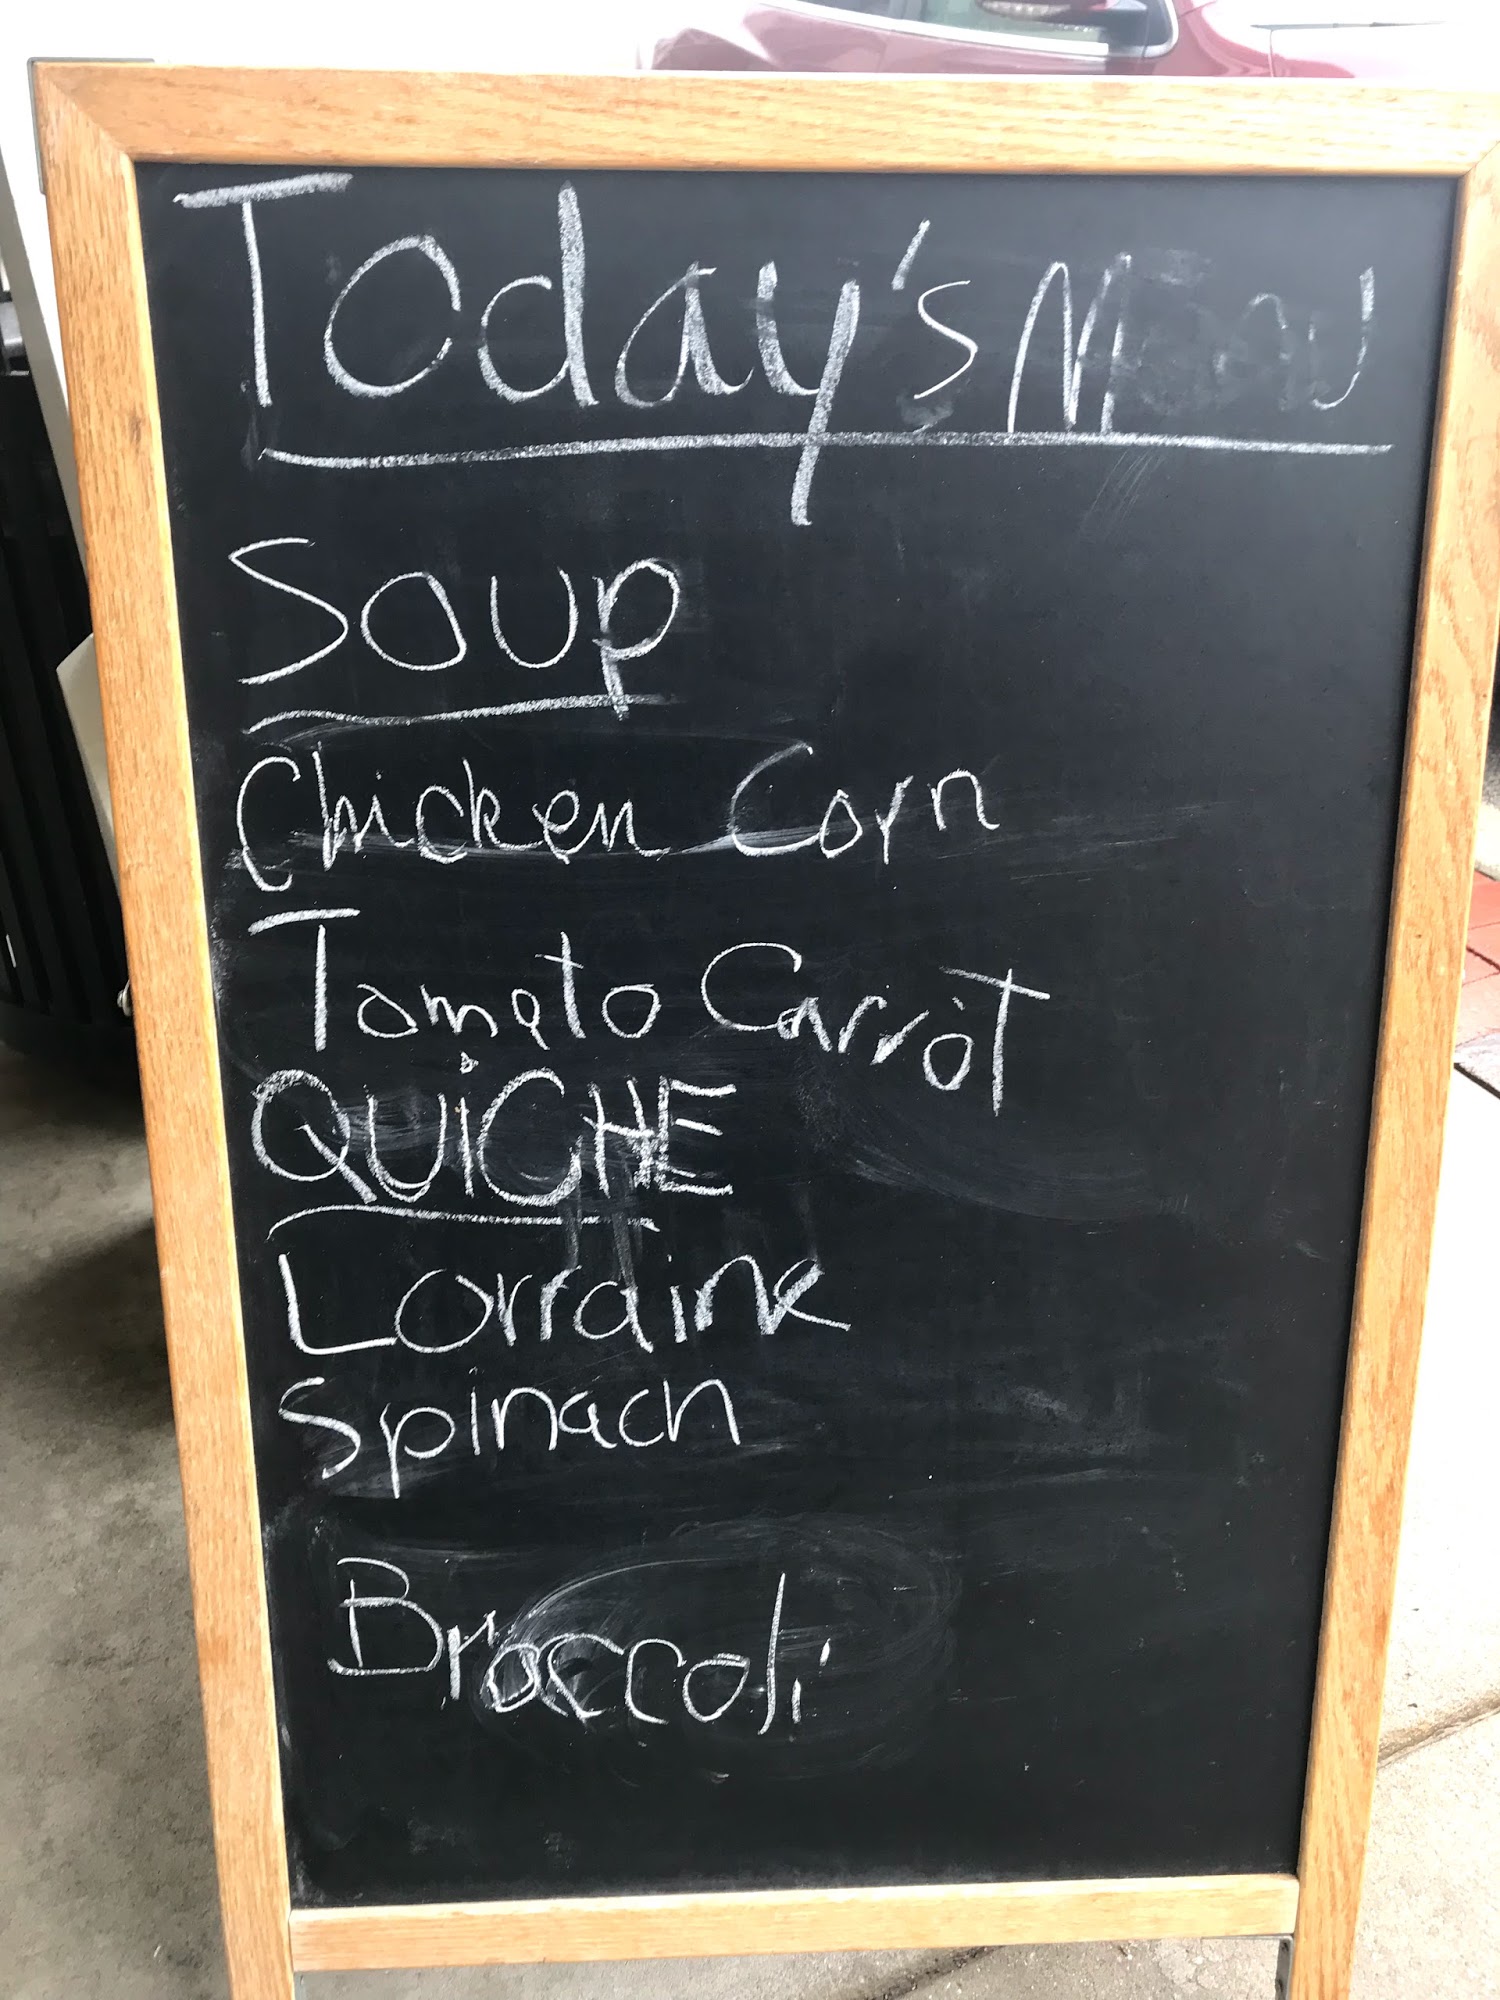 Today's Menu
Soup
Chicken Corn
Tomato Carrot
QUiCHE
Lorraine
Spinach
Broccoli